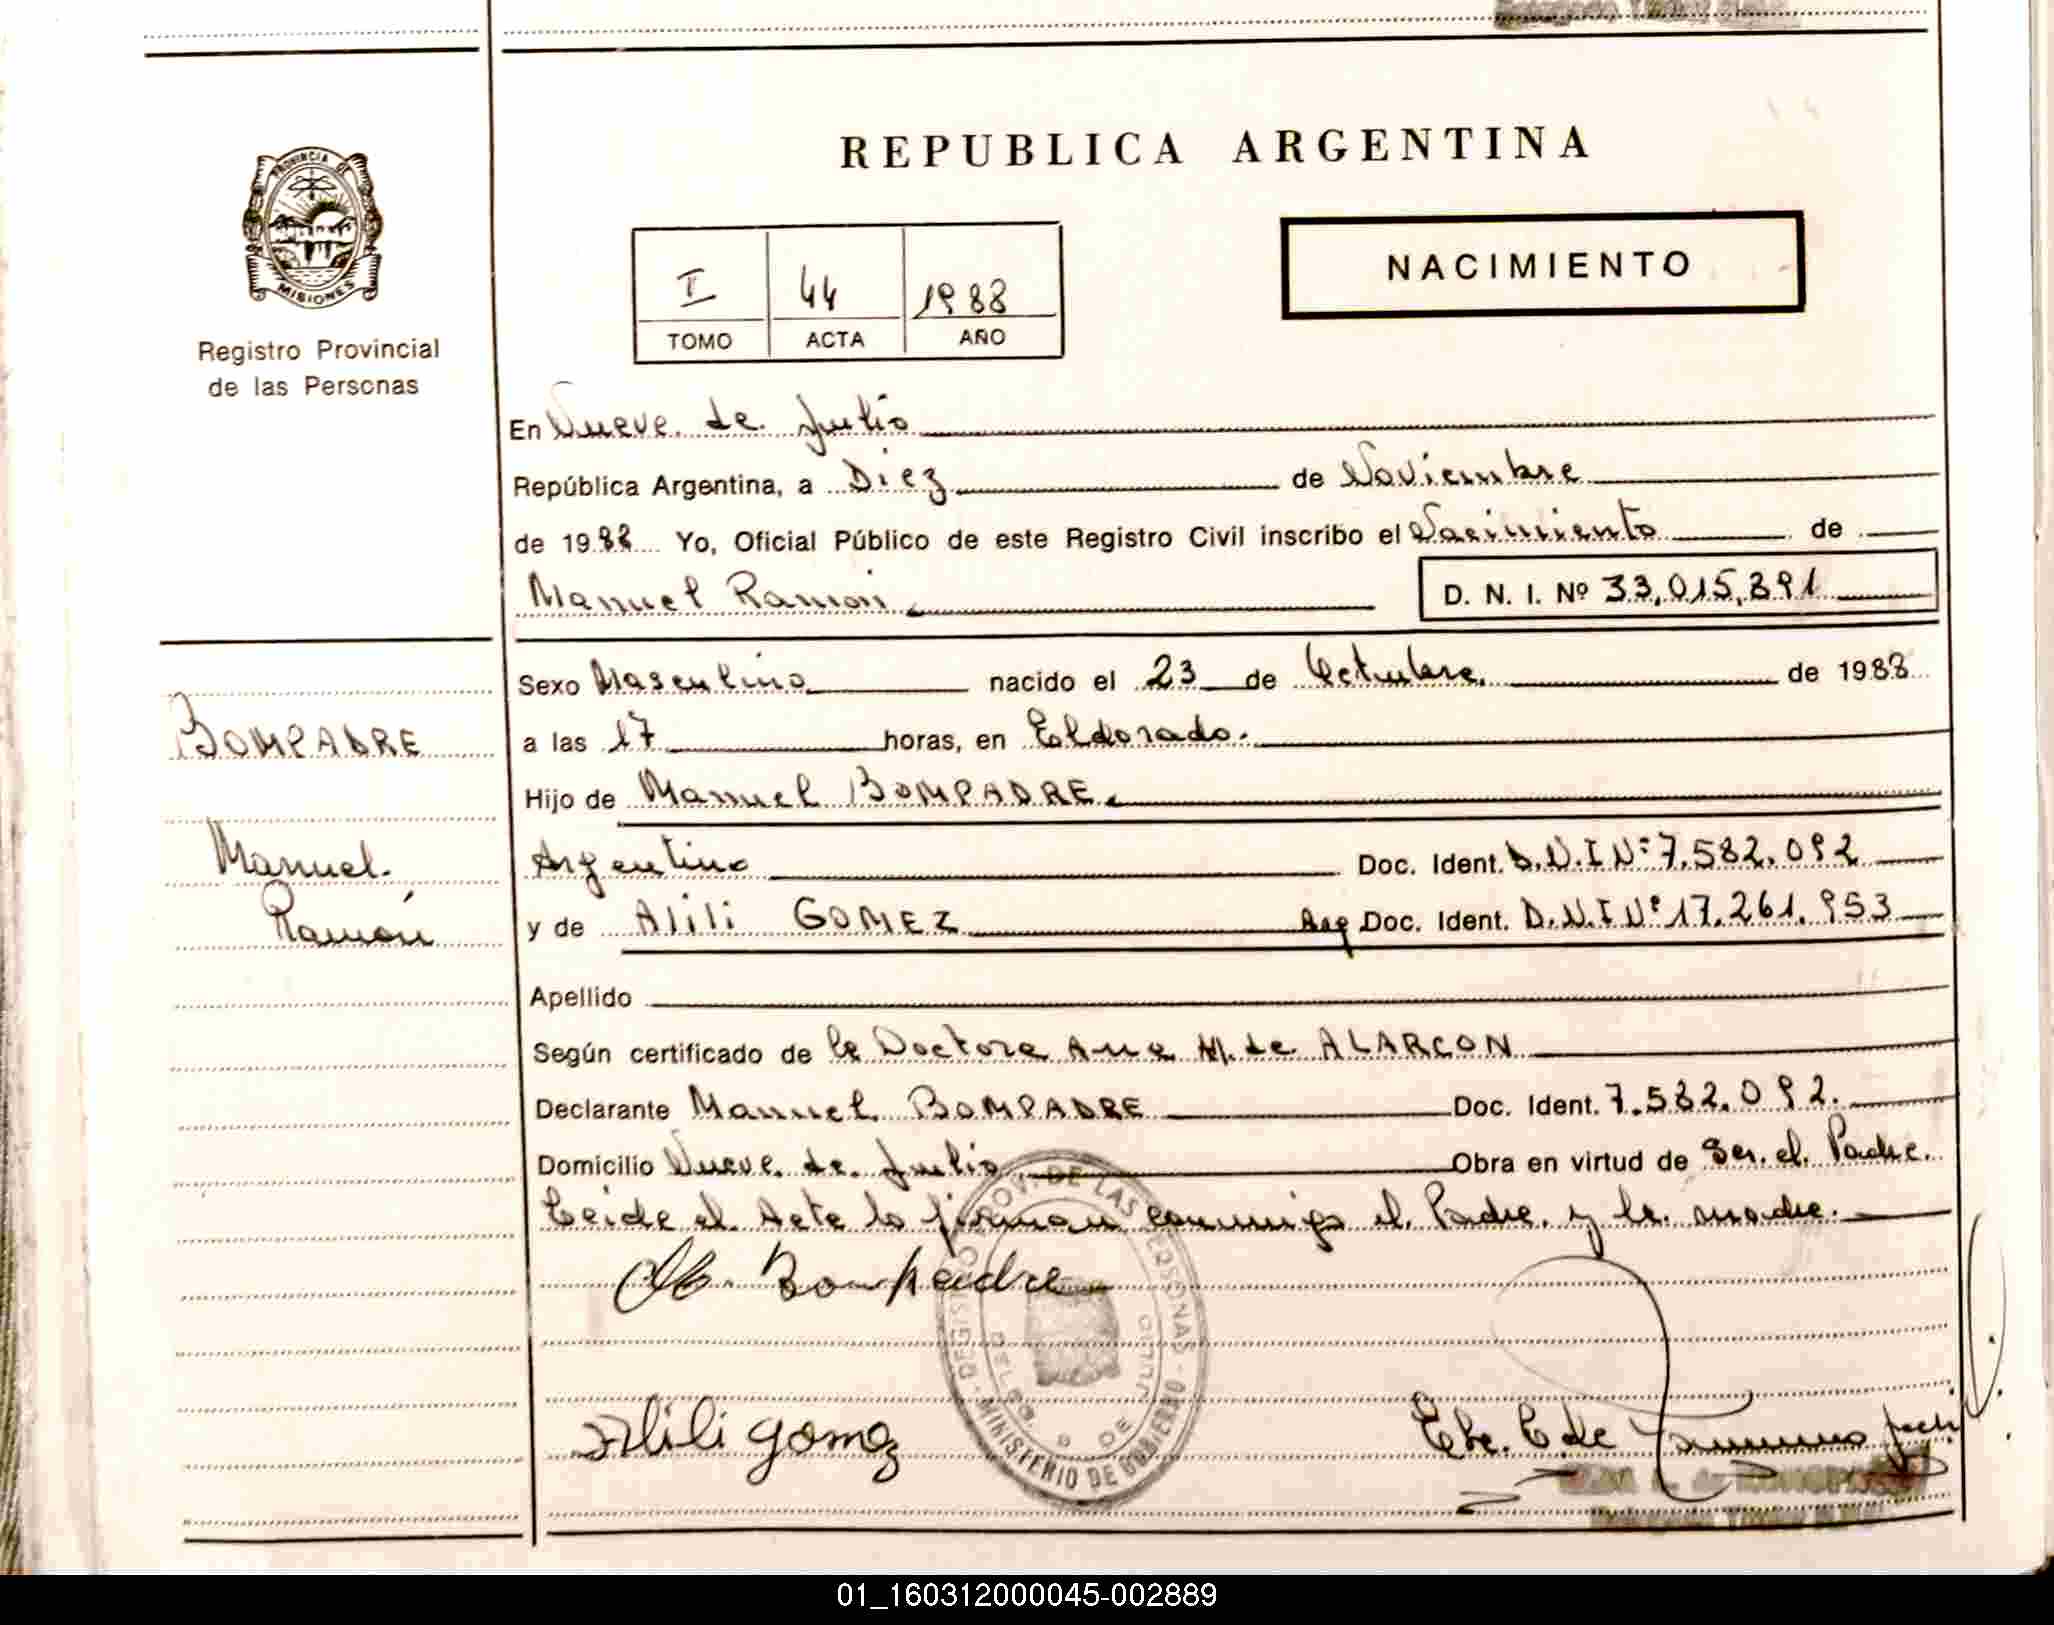 REPUBLICA ARGENTINA
PROVINCIA DE
MISIONES
Registro Provincial
de las Personas
I 44 1988
TOMO ACTA AÑO
NACIMIENTO
En Nueve de Julio
República Argentina, a Diez de Noviembre
de 1988 Yo, Oficial Público de este Registro Civil inscribo el Nacimiento de
Manuel Ramón D. N. I. Nº 33,015,891
Sexo Masculino nacido el 23 de Octubre. de 1988
BOMPADRE
a las 17 horas, en Eldorado.
Hijo de Manuel BOMPADRE.
Manuel.
Ramón
Argentino Doc. Ident. D.N.I Nº 7.582.092
y de Alili GOMEZ Arg Doc. Ident. D.N.I Nº 17.261.953
Apellido
Según certificado de la Doctora Ana M. de ALARCON
Declarante Manuel BOMPADRE Doc. Ident. 7.582.092.
Domicilio Nueve de Julio Obra en virtud de Ser el Padre.
Leida el Acta la firman conmigo el Padre y la madre.
M. Bompadre
REGISTRO PROV. DE LAS PERSONAS
MINISTERIO DE GOBIERNO
DELEG. 9 DE JULIO
Alili gomez
01_160312000045-002889